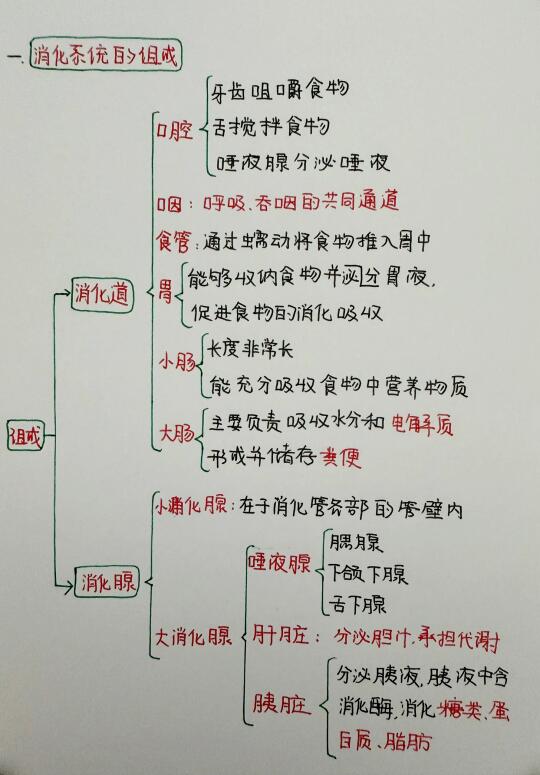 一. 消化系统的组成
牙齿咀嚼食物
口腔
舌搅拌食物
唾液腺分泌唾液
咽：呼吸、吞咽的共同通道
食管：通过蠕动将食物推入胃中
消化道
胃
能够收纳食物并泌分胃液，
促进食物的消化吸收
小肠
长度非常长
能充分吸收食物中营养物质
大肠
主要负责吸收水分和电解质
形成并储存粪便
组成
小消化腺：在于消化管各部的管壁内
消化腺
大消化腺
唾液腺
腮腺
下颌下腺
舌下腺
肝脏：分泌胆汁，承担代谢
胰脏
分泌胰液，胰液中含
消化酶，消化糖类、蛋
白质、脂肪